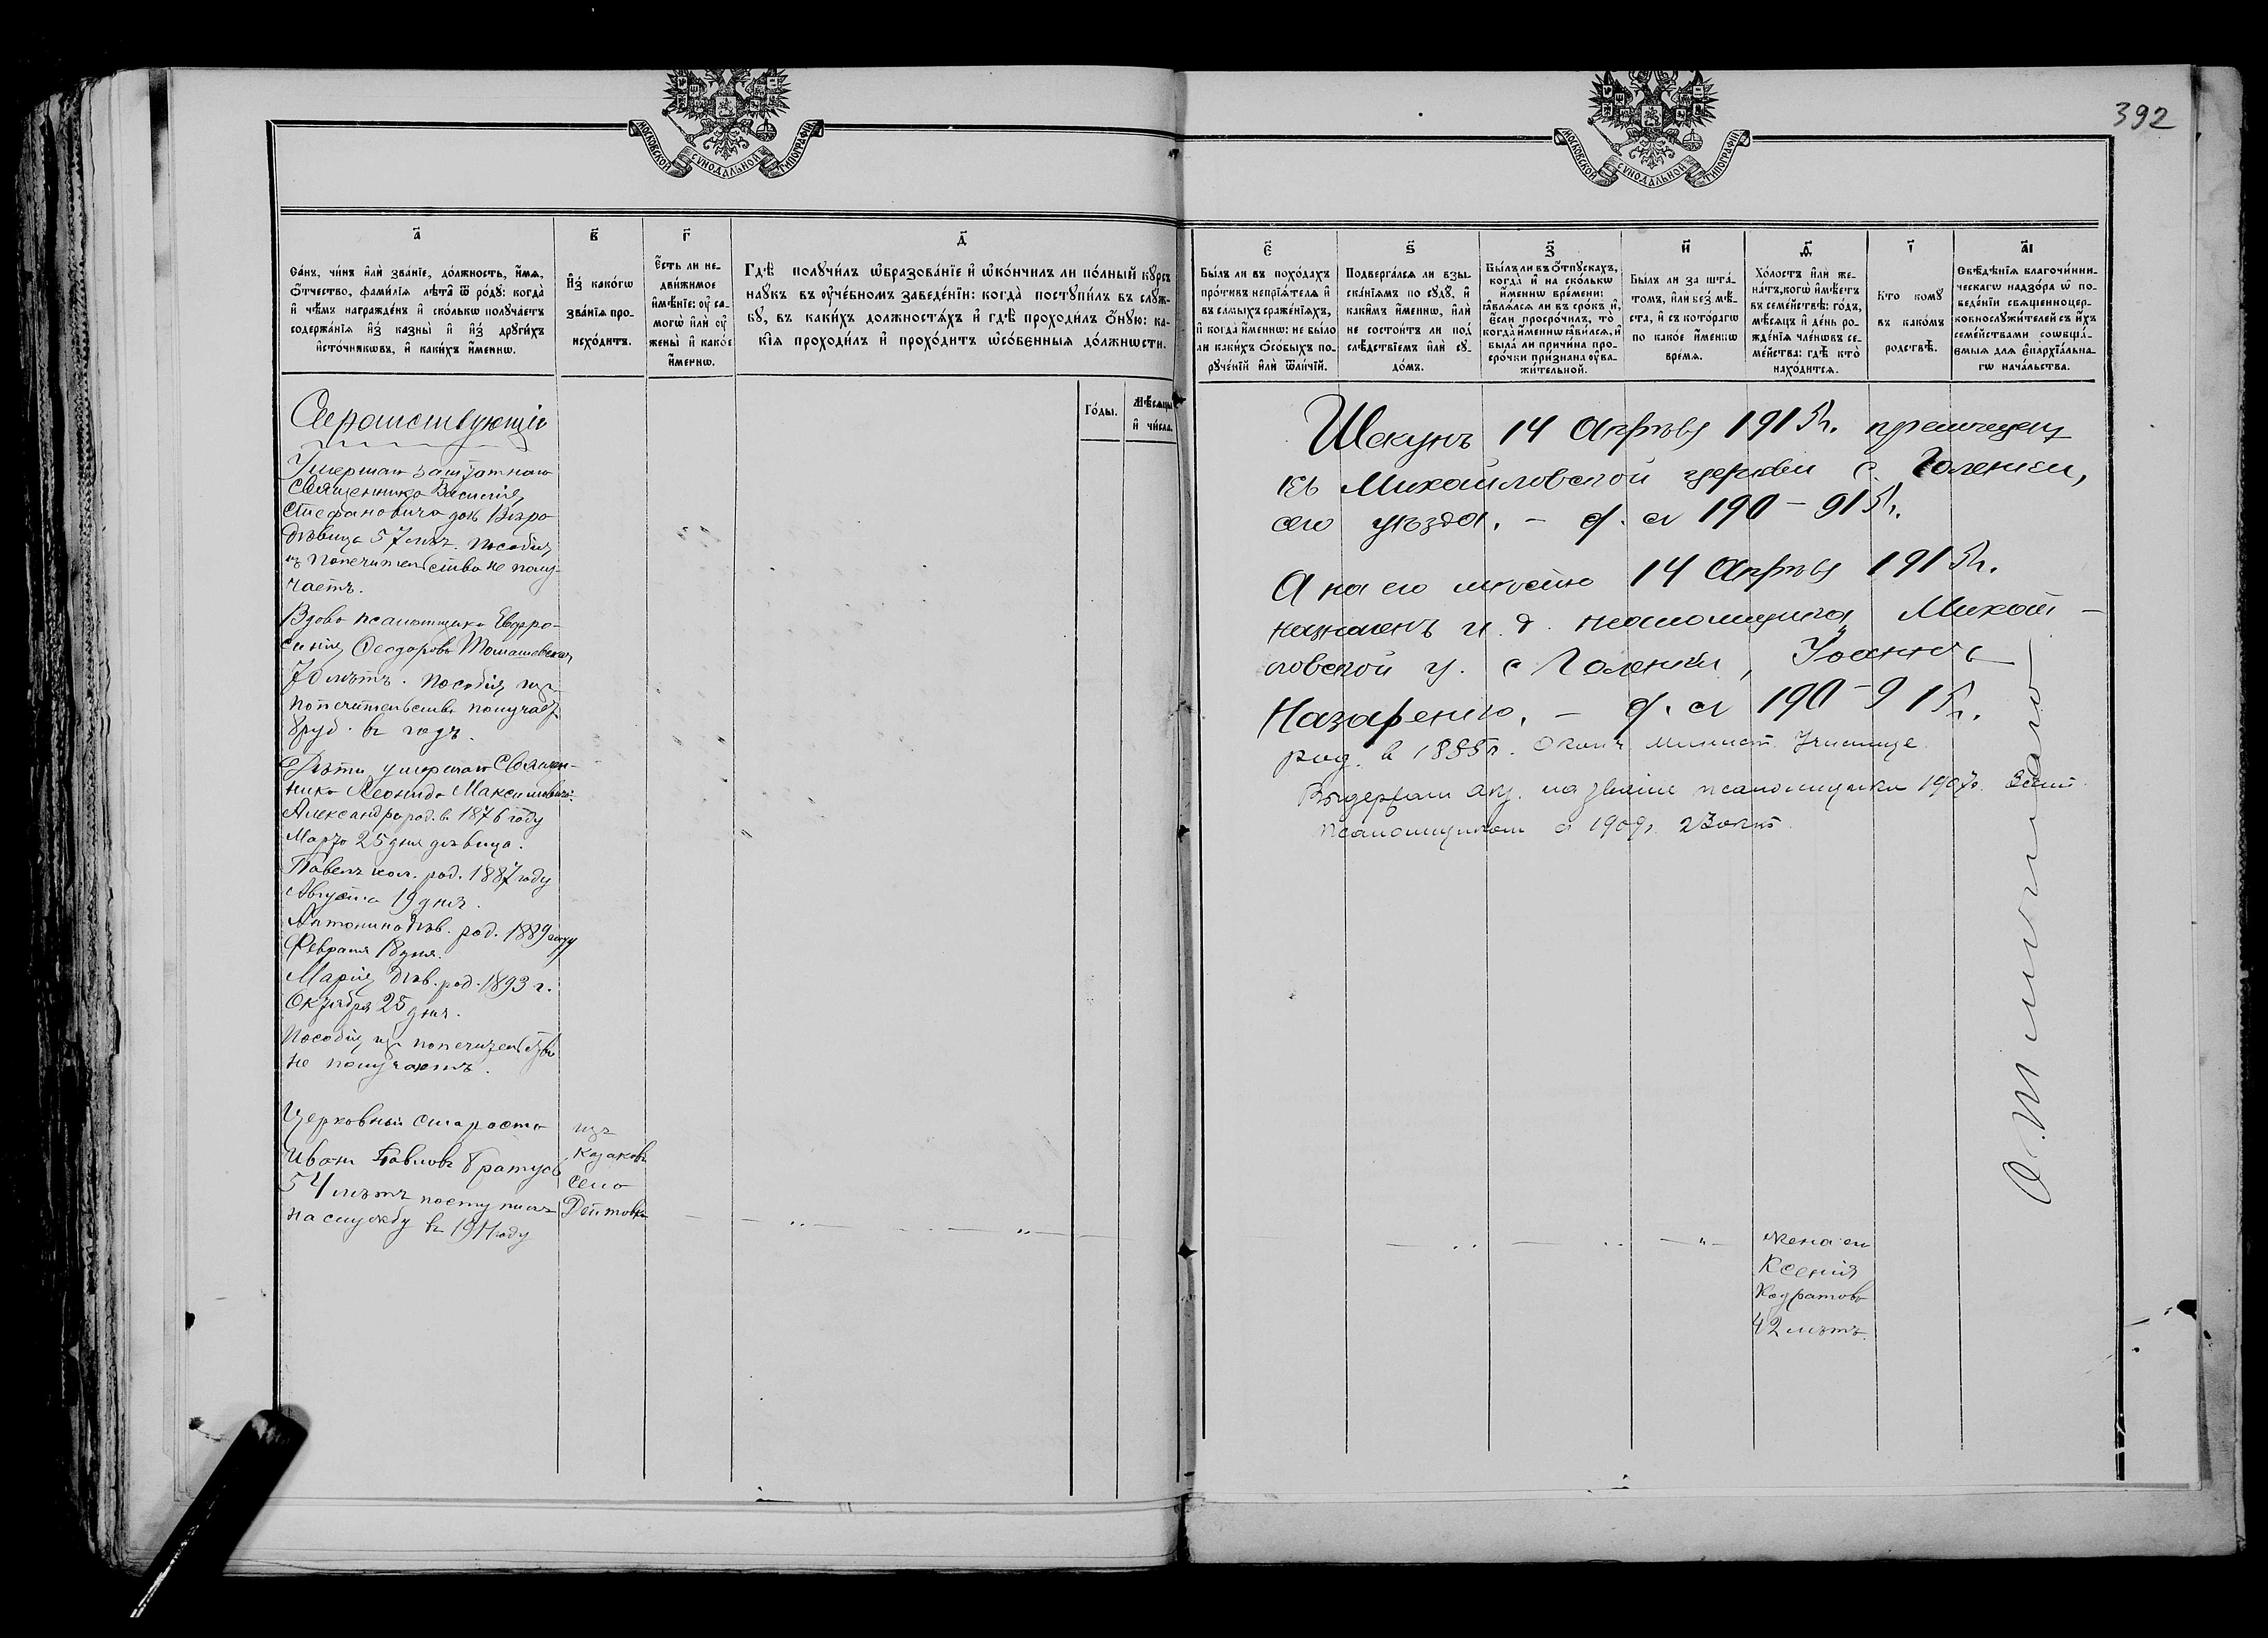 392
МОСКОВСКОЙ СѴНОДАЛЬНОЙ ТИПОГРАФІИ
МОСКОВСКОЙ СѴНОДАЛЬНОЙ ТИПОГРАФІИ
а҃
Са́нъ, чи́нъ и҆лѝ зва́нїе, до́лжность, и҆́мѧ,
ѻ҆́тчество, фами́лїѧ лѣ́та ѿ ро́дꙋ: когда̀
и҆ чѣ́мъ награжде́нъ и҆ ско́лькѡ полꙋча́етъ
содержа́нїѧ и҆з̾ казны̀ и҆ и҆з̾ дрꙋги́хъ
и҆сто́чникѡвъ, и҆ каки́хъ и҆́меннѡ.
в҃
И҆з̾ како́гѡ
зва́нїѧ про-
исхо́дитъ.
г҃
Є҆́сть ли не-
дви́жимое
и҆мѣ́нїе: ᲂу҆ са-
могѡ̀ и҆лѝ ᲂу҆
жены̀ и҆ како́е
и҆́меннѡ.
д҃
Гдѣ̀ полꙋчи́лъ ѡ҆бразова́нїе и҆ ѡ҆ко́нчилъ ли по́лный кꙋ́рсъ
наꙋ́къ въ ᲂу҆че́бномъ заведе́нїи: когда̀ постꙋпи́лъ въ слꙋ́ж-
бꙋ, въ каки́хъ должностѧ́хъ и҆ гдѣ̀ проходи́лъ ѻ҆́нꙋю: ка-
кі́ѧ проходи́лъ и҆ прохо́дитъ ѡ҆со́бенныѧ до́лжности.
Го́ды.
Мѣ́сѧцы
и҆ чи́сла.
є҃
Бы́лъ ли въ похо́дахъ
про́тивъ непрїѧ́телѧ и҆
въ са́мыхъ сраже́нїѧхъ,
и҆ когда̀ и҆́меннѡ: не бы́ло
ли каки́хъ ѻ҆со́быхъ по-
рꙋче́нїй и҆лѝ ѿли́чїй.
ѕ҃
Подверга́лсѧ ли взы-
ска́нїѧмъ по сꙋдꙋ̀, и҆
каки́мъ и҆́меннѡ, и҆лѝ
не состои́тъ ли под̾
слѣ́дствїемъ и҆лѝ сꙋ-
до́мъ.
з҃
Бы́лъ ли въ ѻ҆́тпꙋскахъ,
когда̀ и҆ на ско́лькѡ
и҆́меннѡ вре́мени:
ꙗ҆влѧ́лсѧ ли въ сро́къ и҆,
є҆́сли просро́чилъ, то̀
когда̀ и҆́меннѡ ꙗ҆ви́лсѧ, и҆
была̀ ли причи́на про-
сро́чки при́знана ᲂу҆ва-
жи́тельной.
и҃
Бы́лъ ли за шта́-
томъ, и҆лѝ без̾ мѣ́-
ста, и҆ съ кото́рагѡ
по како́е и҆́меннѡ
вре́мѧ.
ѳ҃
Хо́лостъ и҆лѝ же-
на́тъ, кого̀ и҆мѣ́етъ
въ семе́йствѣ: го́дъ,
мѣ́сѧцъ и҆ де́нь ро-
жде́нїѧ чле́новъ се-
ме́йства: гдѣ̀ кто̀
нахо́дитсѧ.
і҃
Кто̀ комꙋ̀
въ како́мъ
родствѣ̀.
аі҃
Свѣ́дѣнїѧ благочи́нни-
ческагѡ надзо́ра ѡ҆ по-
веде́нїи свѧщенноцер-
ковнослꙋжи́телей съ и҆́хъ
семе́йствами сообща́-
ємыѧ для є҆пархїа́льна-
гѡ нача́льства.
Сиротствующіе
Умершаго заштатнаго
Священника Василія
Стефановича дочь Вѣра
дѣвица 57 лѣт. Пособія
из Попечительства не полу-
чаетъ.
Вдова псаломщика Евфро-
синія Ѳеодорова Томашевская
70 лѣтъ. Пособія из
попечительства получает
8 руб. въ годъ.
Дѣти умершаго Священ-
ника Леонида Максимовича:
Александра род. в 1876 году
Марта 25 дня дѣвица.
Павелъ хол. род. 1887 году
Августа 19 дня.
Антонина дѣв. род. 1889 году
Февраля 18 дня.
Марія дѣв. род. 1893 г.
Октября 25 дня.
Пособія из попечительства
не получаютъ.
Церковный староста
Иванъ Павловъ Братусь
54 лѣтъ поступилъ
на службу въ 1911 году
изъ
Казаковъ
села
Дептовки
Шекунъ 14 Апрѣля 1915 г. премещенъ
къ Михайловской церкви с. Голенки,
сего уѣзда. –
А на его мѣсто 14 Апрѣля 1915 г.
назначенъ и. д. псаломщика Михай-
ловской ц. с Голенки, Іоаннъ
Назаренко. –
род. в 1885 г. Оконч. Минист. Училище.
Выдержал экз. на званіе псаломщика 1907 г.
Псаломщиком с 1909 г.
Отличнаго
жена его
Ксенія
Кодратова
42 лѣтъ.